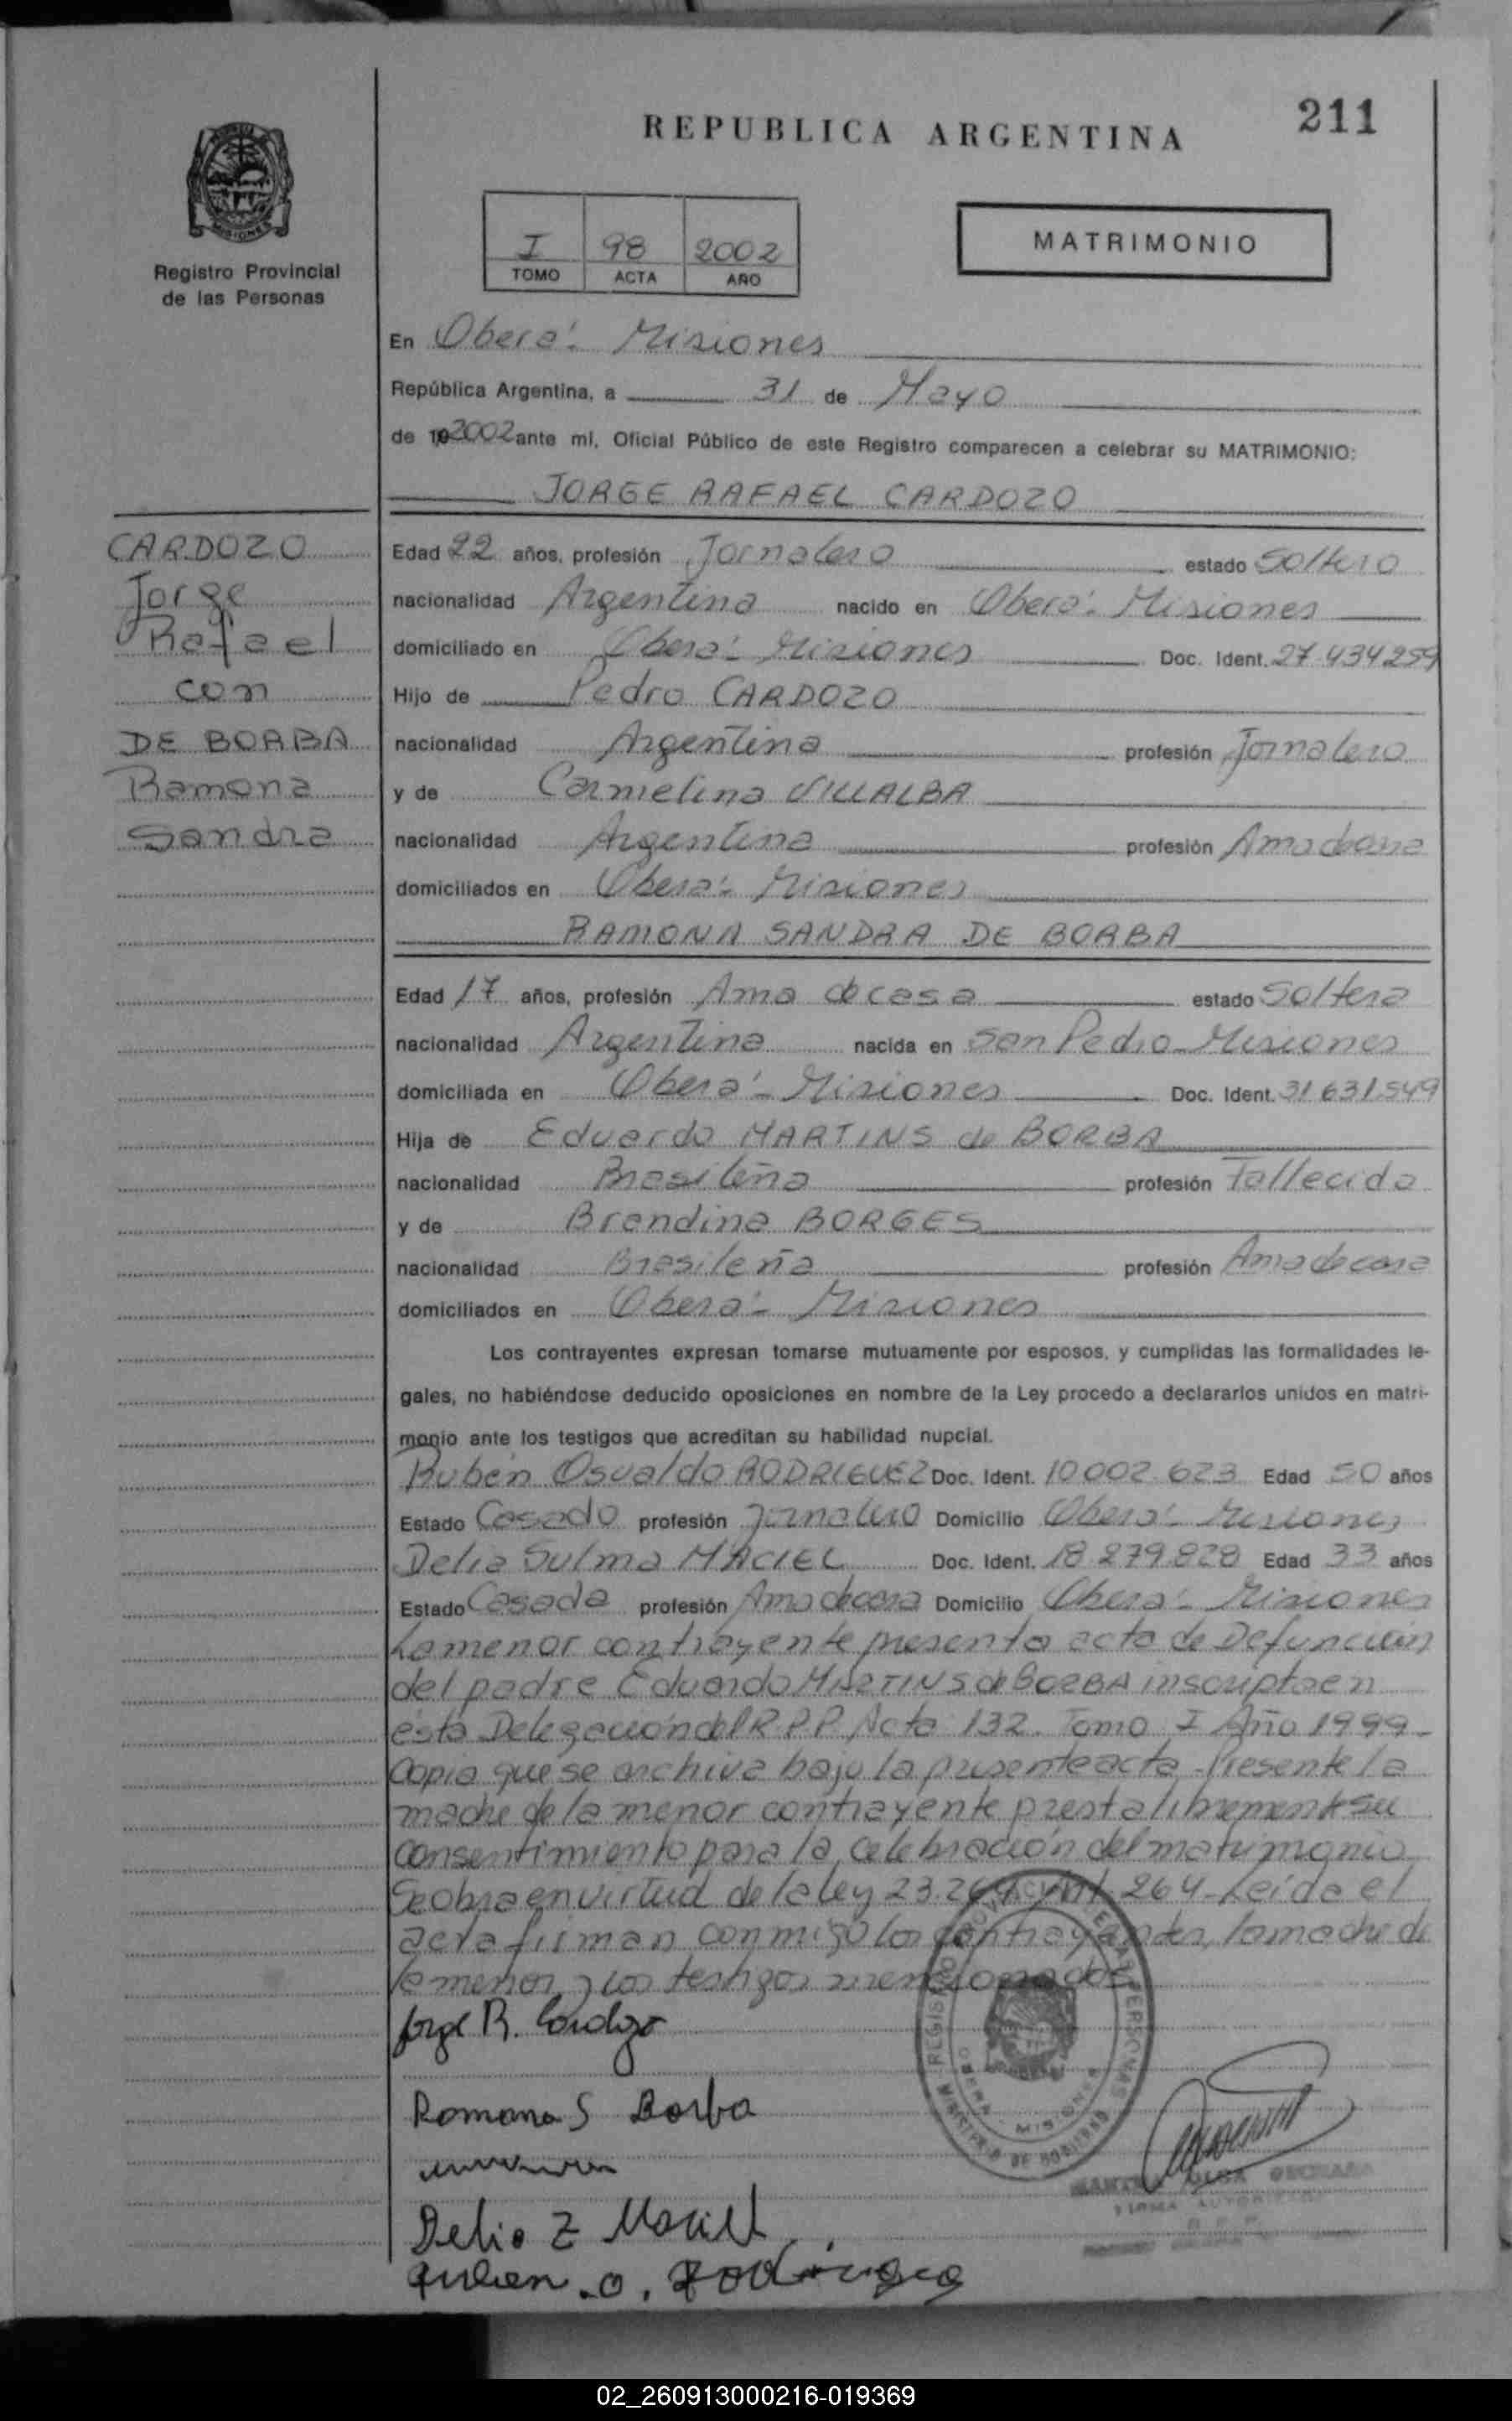 REPUBLICA ARGENTINA
211
MISIONES
Registro Provincial
de las Personas
I 98 2002
TOMO ACTA AÑO
MATRIMONIO
En Oberá: Misiones
República Argentina, a 31 de Mayo
de 19 2002 ante mí, Oficial Público de este Registro comparecen a celebrar su MATRIMONIO:
JORGE RAFAEL CARDOZO
CARDOZO
Jorge
Rafael
con
DE BORBA
Ramona
Sandra
Edad 22 años, profesión Jornalero estado Soltero
nacionalidad Argentina nacido en Oberá: Misiones
domiciliado en Oberá- Misiones Doc. Ident. 27.434259
Hijo de Pedro CARDOZO
nacionalidad Argentina profesión Jornalero
y de Carmelina VILLALBA
nacionalidad Argentina profesión Ama de casa
domiciliados en Oberá- Misiones
RAMONA SANDRA DE BORBA
Edad 17 años, profesión Ama de casa estado Soltera
nacionalidad Argentina nacida en San Pedro-Misiones
domiciliada en Oberá- Misiones Doc. Ident. 31 631.549
Hija de Eduardo MARTINS de BORBA
nacionalidad Brasileña profesión Fallecido
y de Brandina BORGES
nacionalidad Brasileña profesión Ama de casa
domiciliados en Oberá- Misiones
Los contrayentes expresan tomarse mutuamente por esposos, y cumplidas las formalidades le-
gales, no habiéndose deducido oposiciones en nombre de la Ley procedo a declararlos unidos en matri-
monio ante los testigos que acreditan su habilidad nupcial.
Rubén Osvaldo RODRIGUEZ Doc. Ident. 10 002 623 Edad 50 años
Estado Casado profesión Jornalero Domicilio Oberá- Misiones
Delia Sulma MACIEL Doc. Ident. 18 279.828 Edad 33 años
Estado Casada profesión Ama de casa Domicilio Oberá- Misiones
La menor contrayente presenta acta de Defunción
del padre Eduardo MARTINS de BORBA inscripta en
ésta Delegación del R.P.P. Acta 132. Tomo I Año 1999-
Copia que se archiva bajo la presente acta- Presente la
madre de la menor contrayente presta libremente su
consentimiento para la celebración del matrimonio
Se obra en virtud de la ley 23.264 264- Leída el
acta firman conmigo los contrayentes, la madre de
la menor y los testigos mencionados
Jorge R. Cardozo
Ramona S Borba
Delia Z Maciel
Ruben .O. Rodriguez
REGISTRO PROVINCIAL DE LAS PERSONAS
MINISTERIO DE GOBIERNO
OBERA - MISIONES
FIRMA AUTORIZADA
R.P.P.
02_260913000216-019369